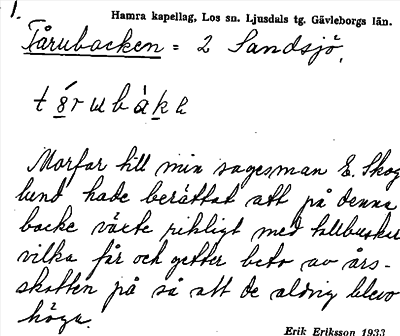 1.
Hamra kapellag, Los sn. Ljusdals tg. Gävleborgs län.
Fårubacken = 2 Sandsjö.
t ǻrubàkk
Morfar till min sagesman E. Skog
lund hade berättat att på denna
backe växte rikligt med tallbuskar
vilka får och getter beto av års-
skotten på så att de aldrig blevo
höga.
Erik Eriksson 1933